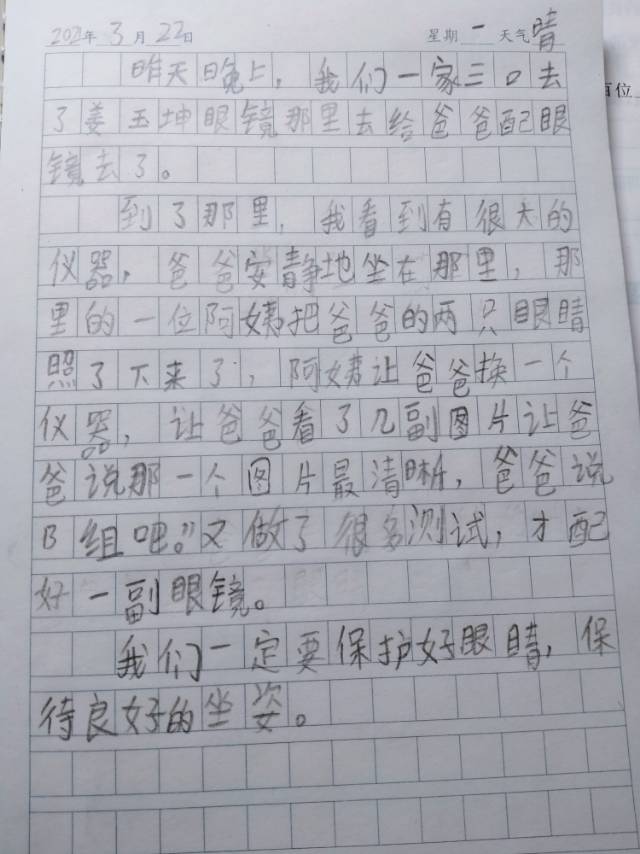 2021年3月22日 星期一天气晴
昨天晚上，我们一家三口去
了姜玉坤眼镜那里去给爸爸配眼
镜去了。
到了那里，我看到有很大的
仪器，爸爸安静地坐在那里，那
里的一位阿姨把爸爸的两只眼睛
照了下来了，阿姨让爸爸换一个
仪器，让爸爸看了几副图片让爸
爸说那一个图片最清晰，爸爸说
B组吧。”又做了很多测试，才配
好一副眼镜。
我们一定要保护好眼睛，保
待良好的坐姿。
百位